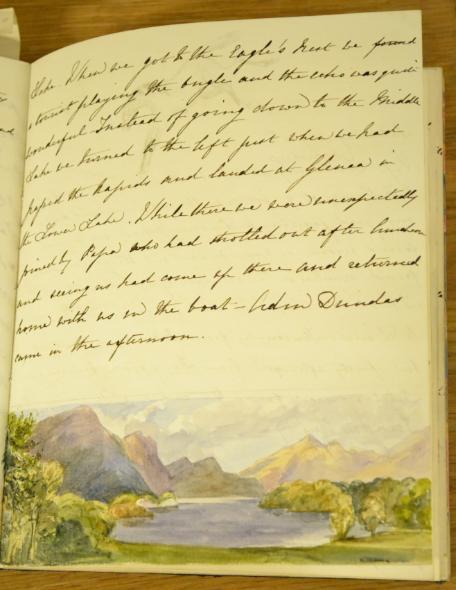 Lake. When we got to the Eagle's Nest we found
a tourist playing the bugle and the echo was quite
wonderful Instead of going down to the Middle
Lake we turned to the left just when we had
passed the Rapids and landed at Glena in
the Lower Lake. While there we were unexpectedly
joined by Papa who had strolled out after luncheon
and seeing us had come up there and returned
home with us in the boat – Adm Dundas
came in the afternoon.